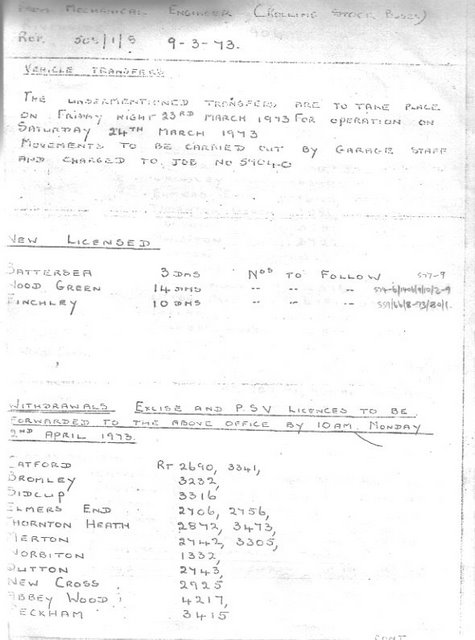 From Mechanical Engineer (Rolling Stock Buses)
Ref. 9-3-73.
Vehicle Transfers
The undermentioned transfers are to take place
on Friday night 23rd March 1973 for operation on
Saturday 24th March 1973
Movements to be carried out by Garage Staff
and charged to Job No
New Licensed
Battersea 3 DMS Nos to Follow 577-9
Wood Green 14 DMS -- -- --
Finchley 10 DMS -- -- --
Withdrawals Exlise and P.S.V Licences to be
forwarded to the above office by 10am. Monday
2nd April 1973.
Catford RT 2690, 3341,
Bromley 3232,
Sidcup 3316
Elmers End 2706, 2756,
Thornton Heath 2872, 3473,
Merton 2742, 3305,
Norbiton 1332,
Sutton 2743,
New Cross 2925
Abbey Wood 4217,
Peckham 3415
CONT